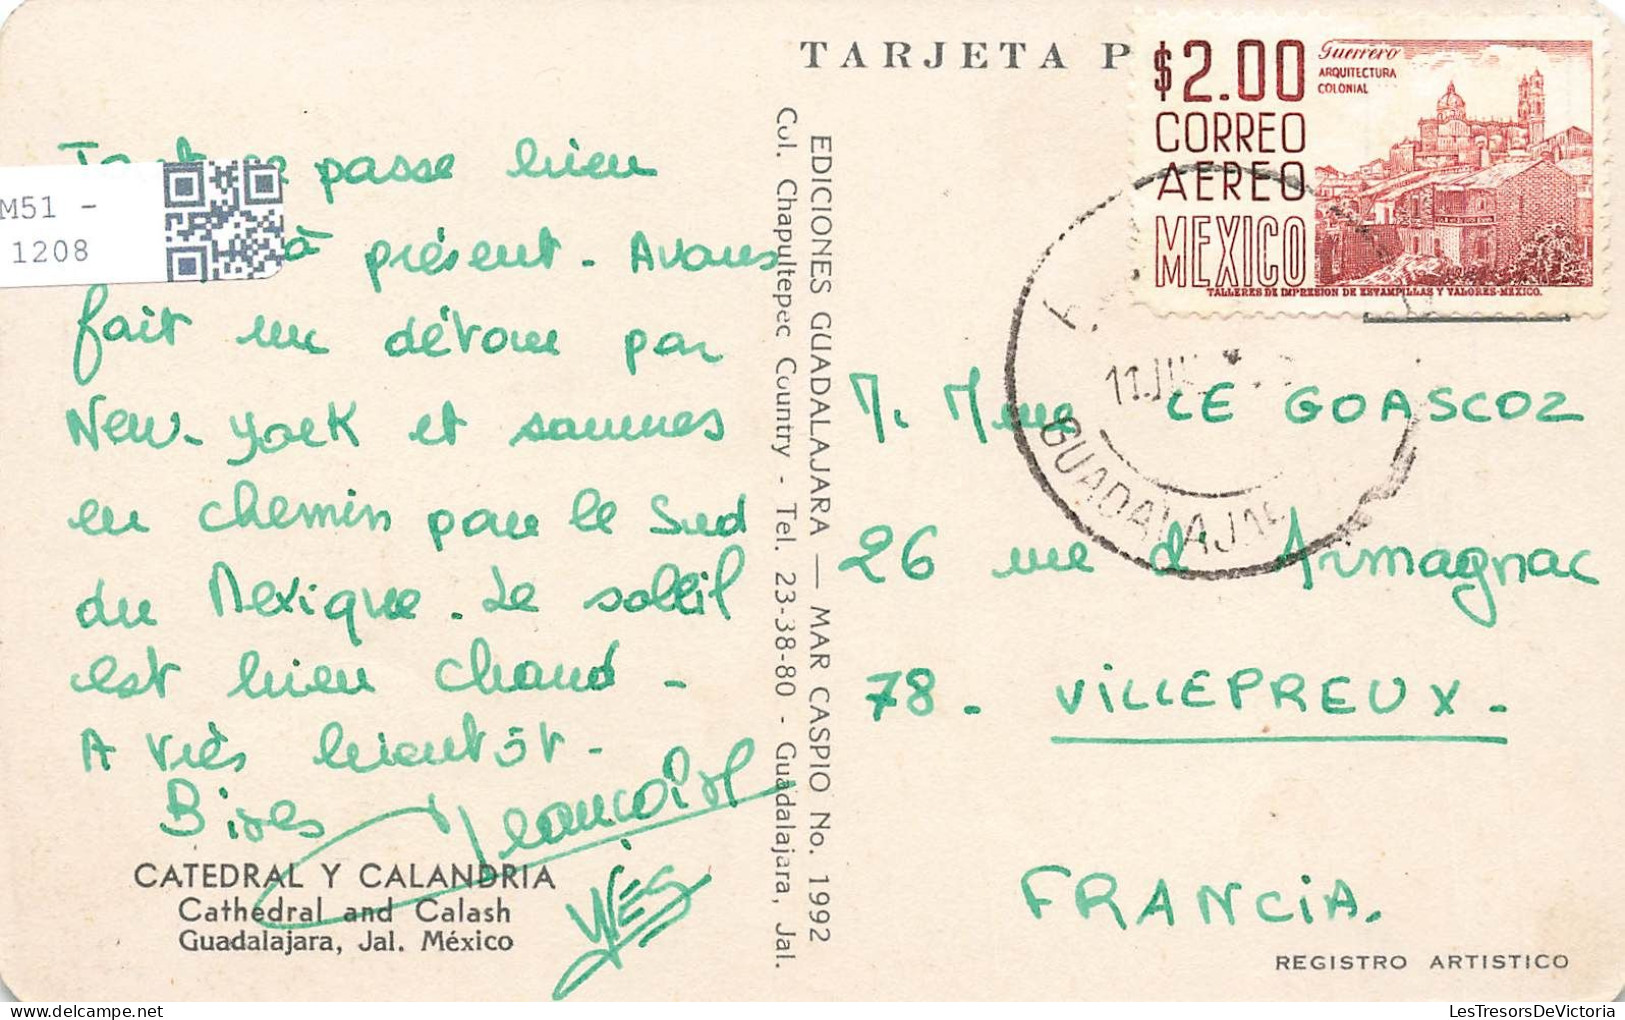 TARJETA P
$2.00
CORREO
AEREO
MEXICO
Guerrero
ARQUITECTURA
COLONIAL
TALLERES DE IMPRESION DE ESTAMPILLAS Y VALORES-MEXICO.
11 JUL
GUADALAJAR
M51 -
1208
Tout se passe bien
à présent. Avons
fait un détour par
New-York et sommes
en chemin pour le Sud
du Mexique. Le soleil
est bien chaud -
A très bientôt -
Bises
YVES
CATEDRAL Y CALANDRIA
Cathedral and Calash
Guadalajara, Jal. México
EDICIONES GUADALAJARA — MAR CASPIO No. 1992
Col. Chapultepec Country - Tel. 23-38-80 - Guadalajara, Jal.
M. Mme LE GOASCOZ
26 rue d'Armagnac
78. VILLEPREUX.
FRANCIA.
REGISTRO ARTISTICO
LesTresorsDeVictoria